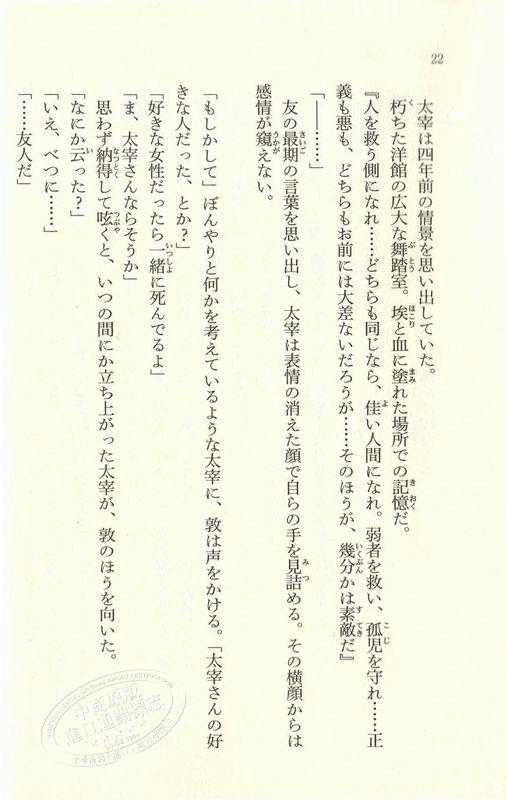 22
太宰は四年前の情景を思い出していた。
朽ちた洋館の広大な舞踏室。埃と血に塗れた場所での記憶だ。
『人を救う側になれ……どちらも同じなら、佳い人間になれ。弱者を救い、孤児を守れ……正
義も悪も、どちらもお前には大差ないだろうが……そのほうが、幾分かは素敵だ』
「――……」
友の最期の言葉を思い出し、太宰は表情の消えた顔で自らの手を見詰める。その横顔からは
感情が窺えない。
「もしかして」ぼんやりと何かを考えているような太宰に、敦は声をかける。「太宰さんの好
きな人だった、とか？」
「好きな女性だったら一緒に死んでるよ」
「ま、太宰さんならそうか」
思わず納得して呟くと、いつの間にか立ち上がった太宰が、敦のほうを向いた。
「なにか云った？」
「いえ、べつに……」
「……友人だ」
中商原版
進口通關雜志